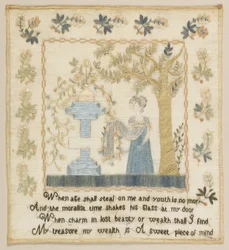 When age shall steal on me and youth is no more
And the moralist time shakes his Glass at my door
When charm in lost beauty or wealth shall I find
My treasure my wealth is A sweet piece of mind